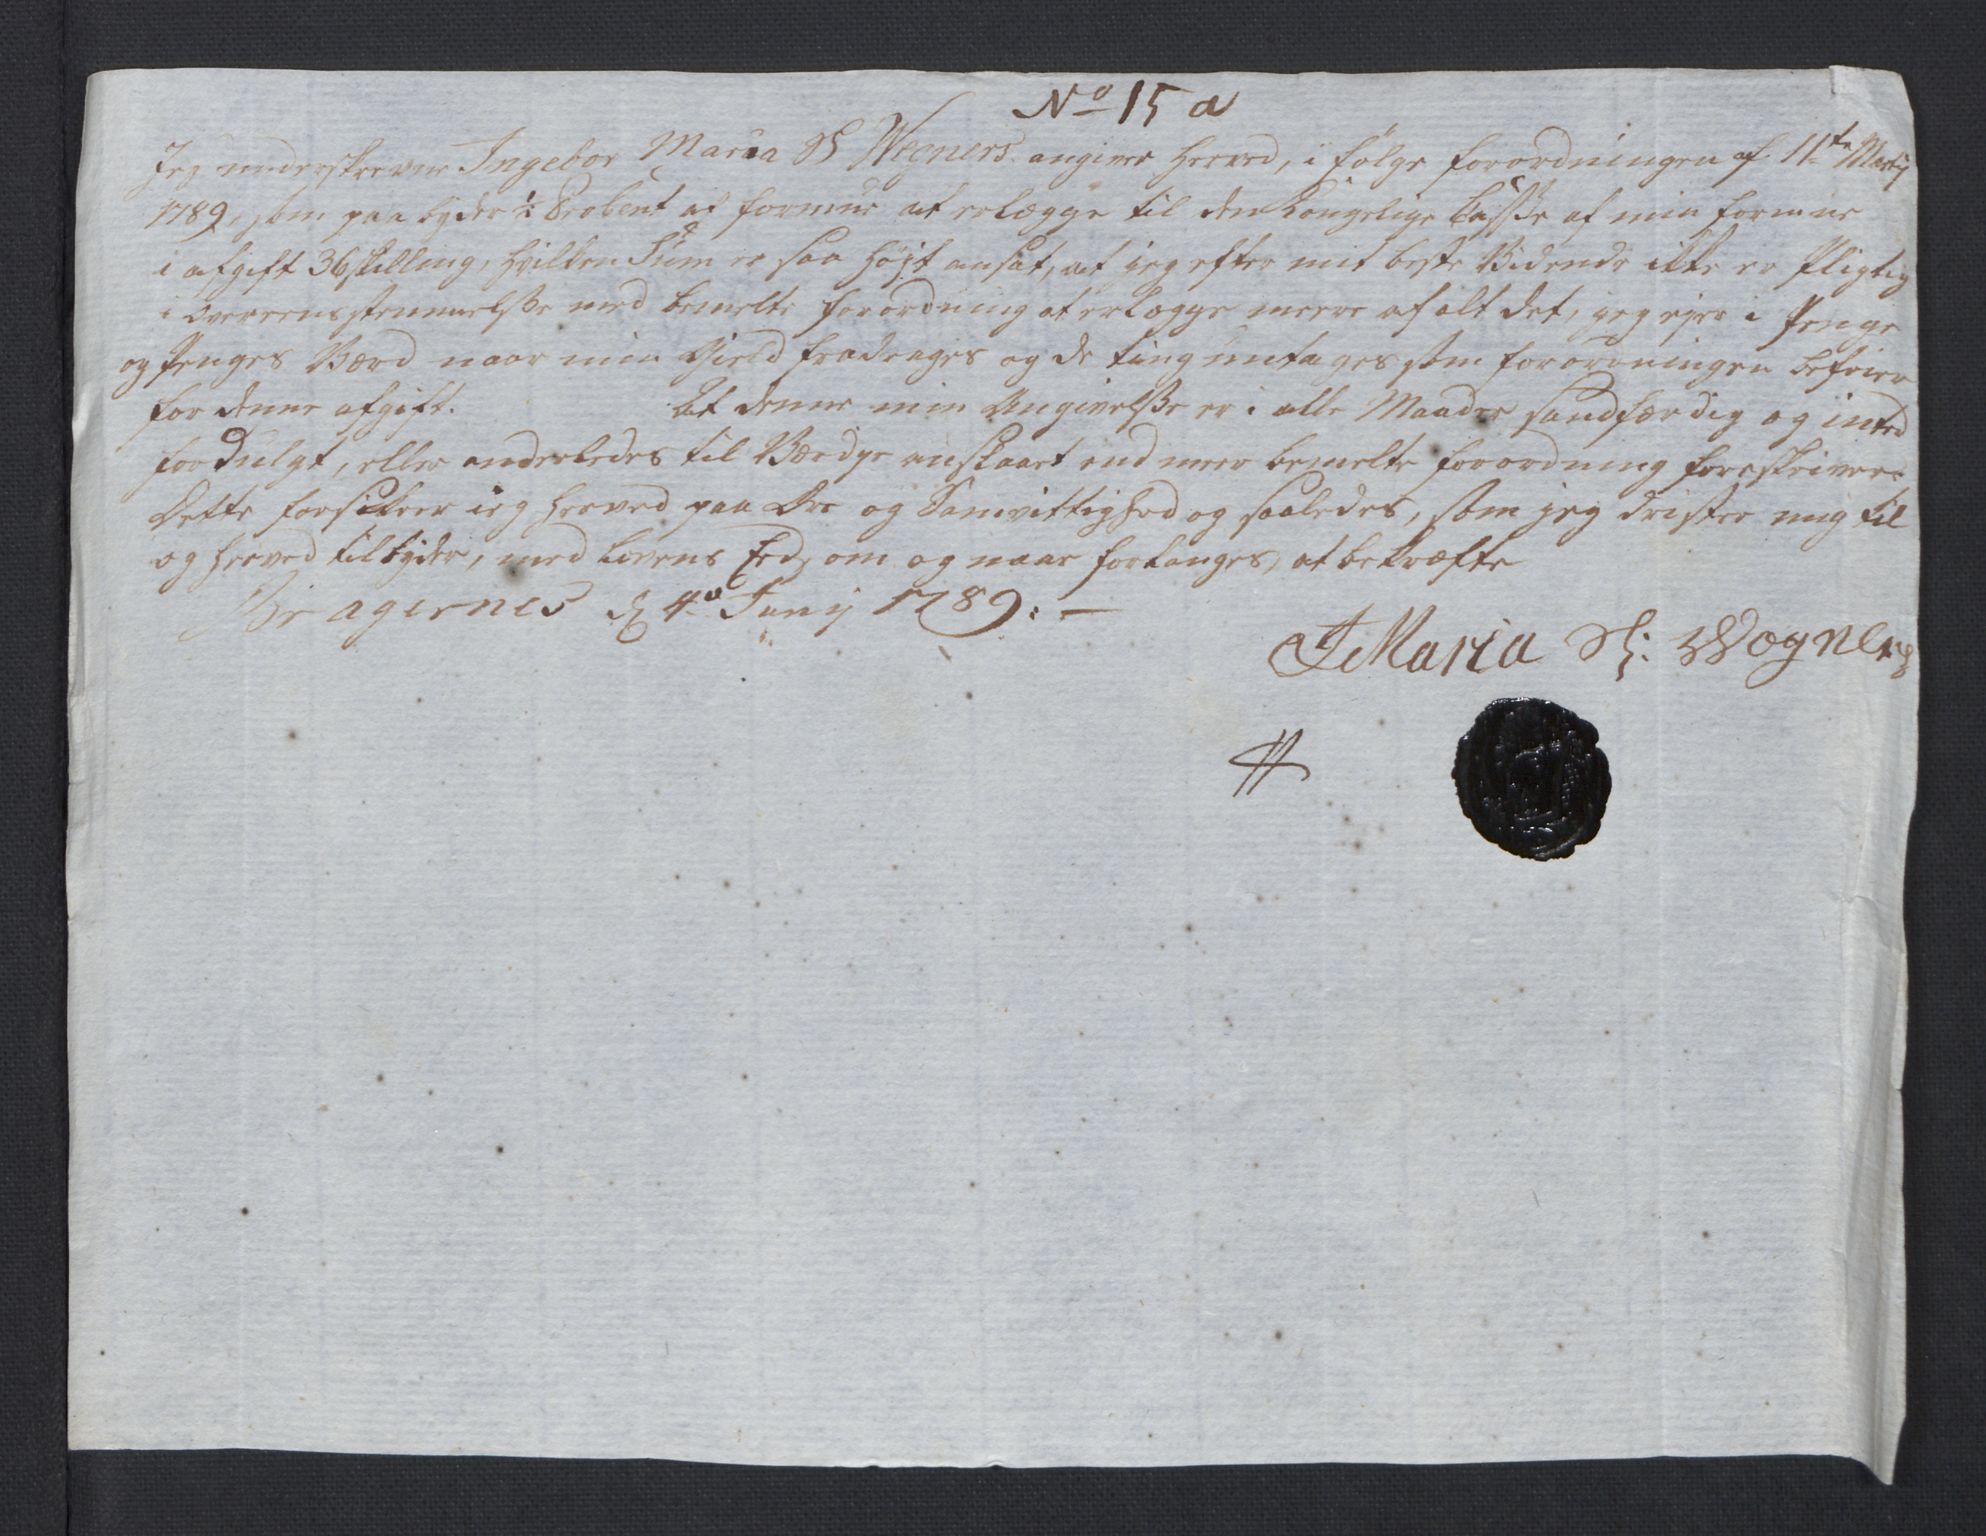 No 15 a
Jeg underskrevne Ingebor Maria Sl Wegners angiver herved, i følge forordningen af 11te Martij
1789, som paabyder ½ Procent af formue at erlægge til den Kongelige Casse af min formue
i afgift 36 skilling, hvilken Sum er saa højt ansat, at jeg efter mit beste Vidende ikke er Pligtig
i Overeensstemmelsse med bemelte forordning at erlægge meere af alt det, jeg ejer i Penge
og Penges Værd naar min Gield fradrages og de ting untages som forordningen befrier
for denne afgift. At denne min Angivelsse er i alle Maader sandfærdig og inted
fordulgt, eller anderledes til Værdye anslaaet end meer bemelte forordning foreskriver.
Dette forsikrer ieg herved paa Ære og Samvittighed og saaledes, som jeg drister mig til
og herved tilbyder, med Lovens Eed, om og naar forlanges, at bekræfte
Bragernes d 4de Junij 1789. —
I Maria Sl: Wægners